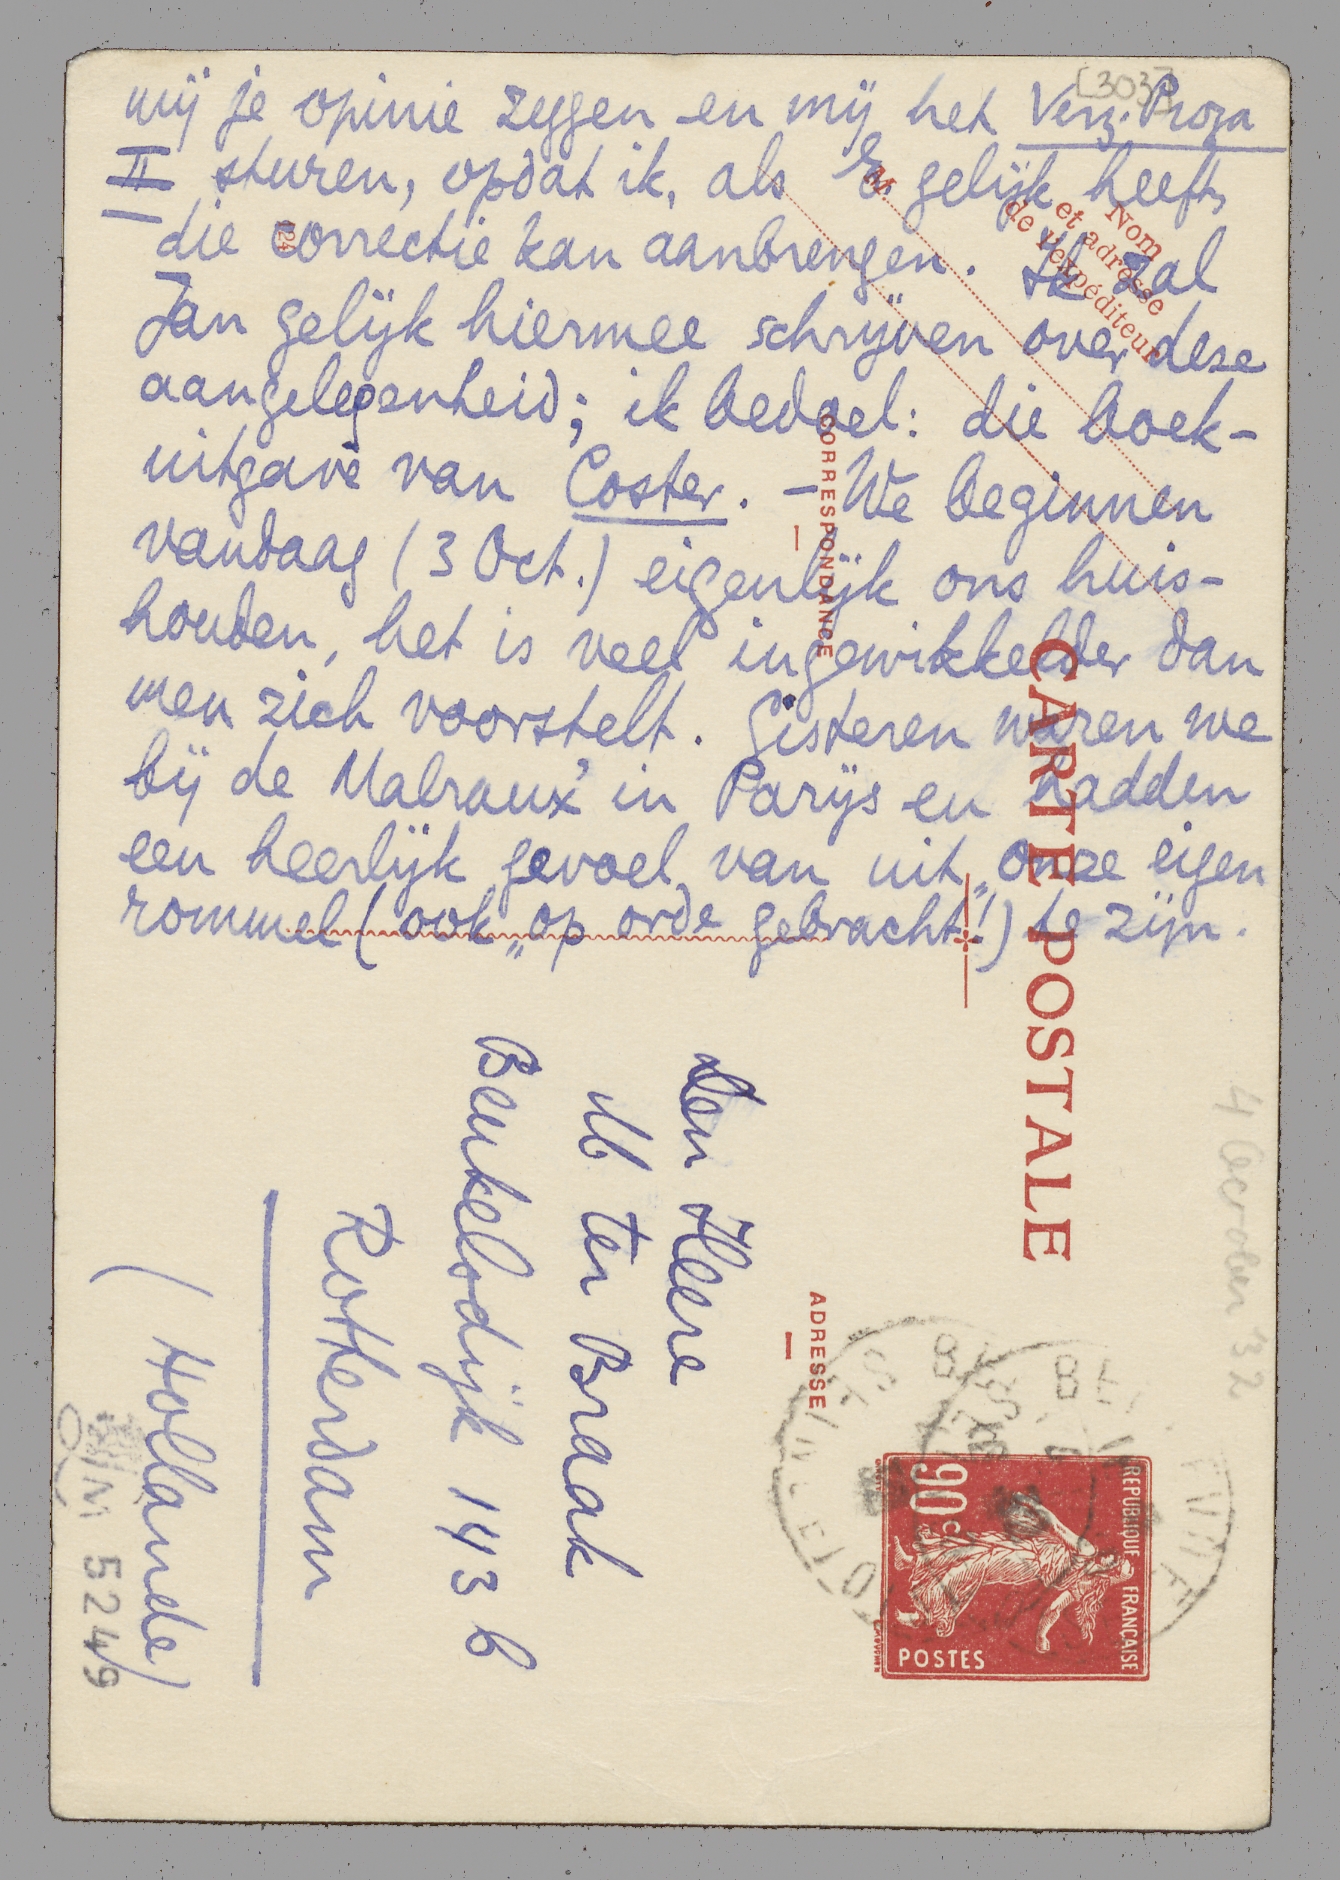 [303]
mij je opinie zeggen en mij het Verz. Proza
II sturen, opdat ik, als E. gelijk heeft,
die correctie kan aanbrengen. Ik zal
Jan gelijk hiermee schrijven over deze
aangelegenheid; ik bedoel: die boek-
uitgave van Coster. – We beginnen
vandaag (3 Oct.) eigenlijk ons huis-
houden, het is veel ingewikkelder dan
men zich voorstelt. Gisteren waren we
bij de Malraux' in Parijs en hadden
een heerlijk gevoel van uit onze eigen
rommel (ook „op orde gebracht"!) te zijn.
Nom
et adresse
de l'expéditeur
M
CARTE POSTALE
CORRESPONDANCE
ADRESSE
Den Heere
M ter Braak
Beukelsdijk 143 b
Rotterdam
(Hollande)
4 October 32
REPUBLIQUE FRANÇAISE
90 c
POSTES
BELLEVUE
SEINE ET OISE
LM 5249